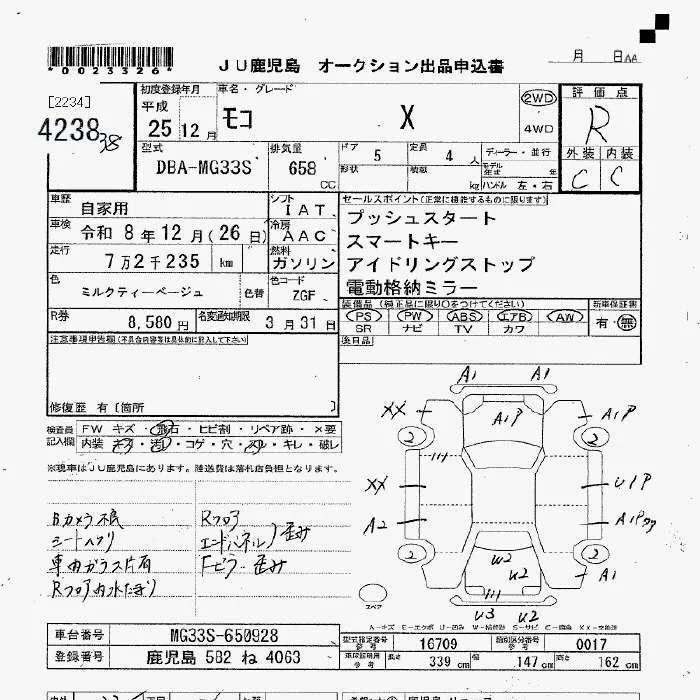 *0023326*
JU鹿児島 オークション出品申込書
月 日 AA
[2234]
4238
38
初度登録年月
平成
25 12 月
車名・グレード
モコ X
2WD
4WD
評価点
R
外装 内装
C C
型式
DBA-MG33S
排気量
658 CC
ドア 5
定員 4 人
形状
積載 kg
ディーラー・並行
モデル年式 年
ハンドル 左・右
車歴 自家用
シフト IAT
車検 令和 8 年 12 月 (26 日)
冷房 AAC
走行 7万2千235 km
燃料 ガソリン
色 ミルクティーベージュ 色替
色コード ZGF
R券 8,580 円
名変通知期限 3 月 31 日
セールスポイント(正常に機能するものに限ります)
プッシュスタート
スマートキー
アイドリングストップ
電動格納ミラー
装備品(純正品に限り○をつけてください)
PS PW ABS エアB AW
SR ナビ TV カワ
新車保証書
有・無
後日品
注意事項申告欄(不具合内容等は具体的に記入して下さい)
修復歴 有〔箇所 〕
検査員記入欄
FW キズ・飛石・ヒビ割・リペア跡・X要
内装 キズ・汚レ・コゲ・穴・スレ・キレ・破レ
※現車はJU鹿児島にあります。陸送費は落札店負担となります。
Bカメラ不良
シートヘタリ
車内ガラス片有
Rフロア内水たまり
Rフロア
エンドパネル
歪み
Fピラー歪み
A1 A1
XX A1P A1P
2 2
XX U1P
A2 A1P
2 2
A1
W2
U2
U3 U2
スペア
A-キズ E-エクボ U-凹み W-補修跡 S-サビ C-腐食 XX-交換済
車台番号 MG33S-650928
登録番号 鹿児島 582 ね 4063
型式指定番号 参考 16709
類別区分番号 参考 0017
車検証明用 参考
長さ 339 cm
幅 147 cm
高さ 162 cm